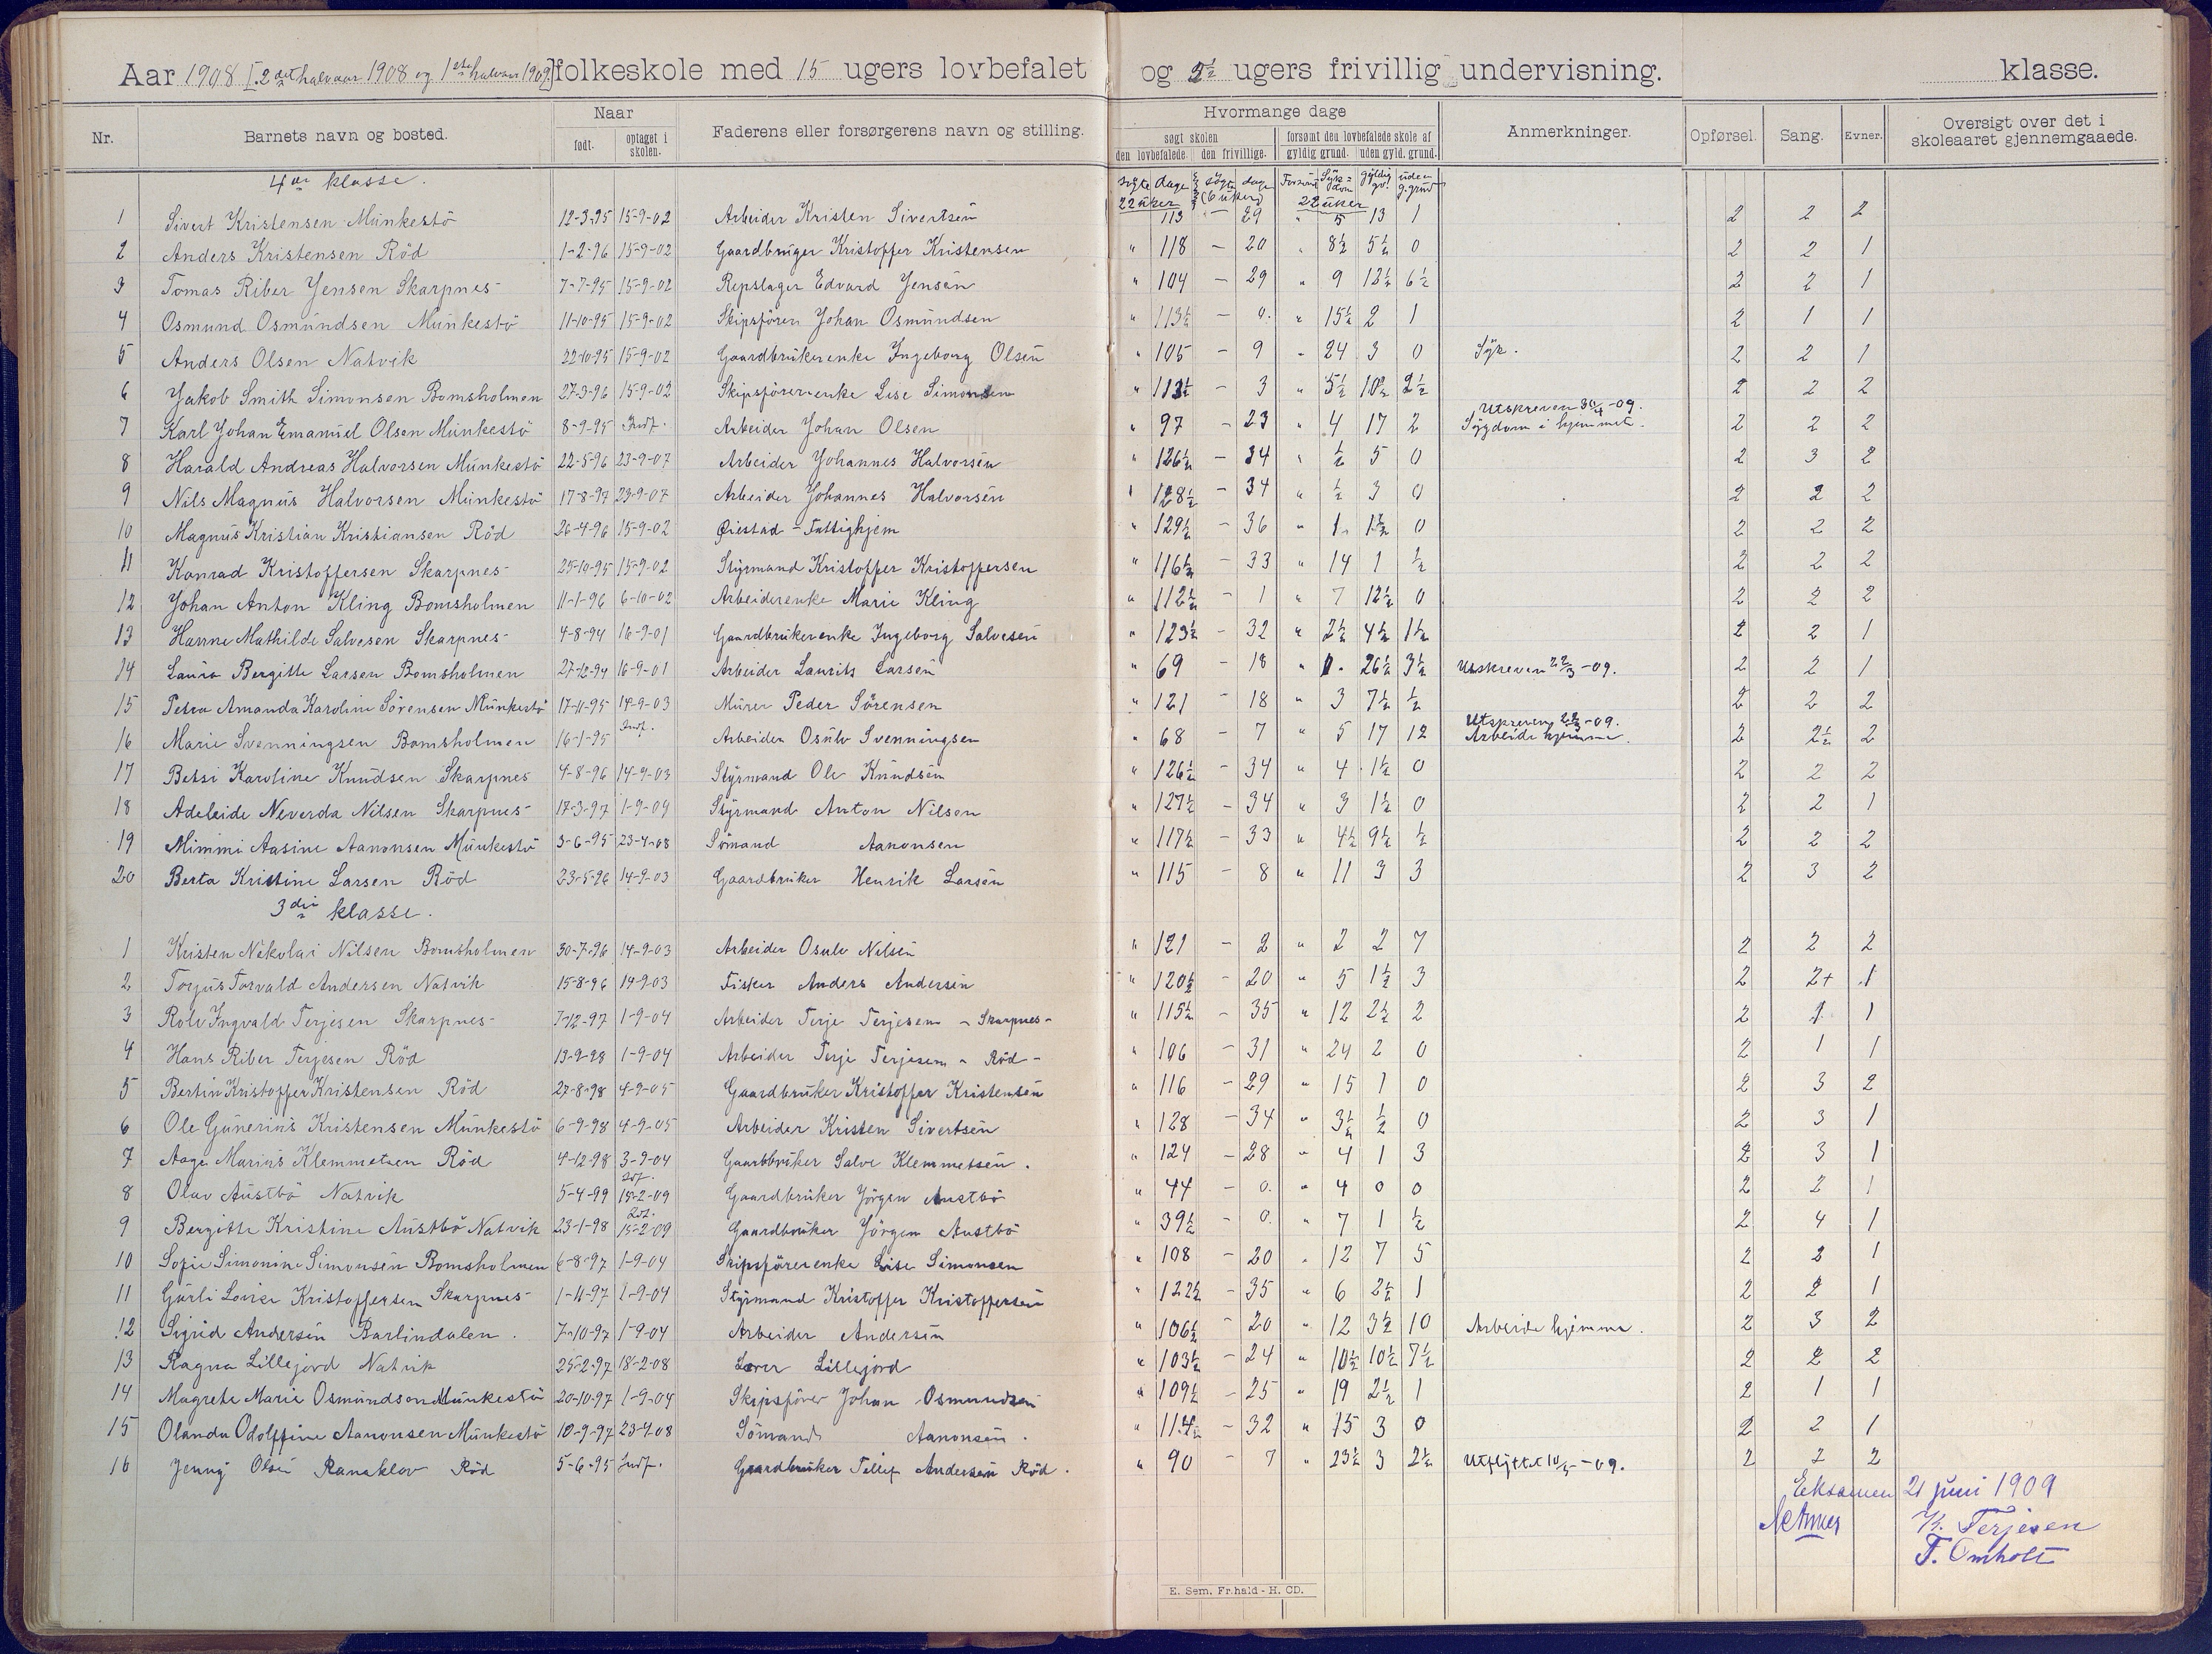 Aar 1908 [2det halvaar 1908 og 1ste halvaar 1909] folkeskole med 15 ugers lovbefalet og 2½ ugers frivillig undervisning. klasse.
Nr. Barnets navn og bosted. Naar født. optaget i skolen. Faderens eller forsørgerens navn og stilling. Hvormange dage søgt skolen den lovbefalede. den frivillige. forsømt den lovbefalede skole af gyldig grund. uden gyld. grund. Anmerkninger. Opførsel. Sang. Evner. Oversigt over det i skoleaaret gjennemgaaede.
4de klasse. søgte dage 22 uker søgte dage (6 uker) Forsømt Syk=dom gyldig gr. uden g. grund 22 uker
1 Sivert Kristensen Munkestö 12-3-95 15-9-02 Arbeider Kristen Sivertsen " 113 - 29 " 5 13 1 2 2 2
2 Anders Kristensen Röd 1-2-96 15-9-02 Gaardbruger Kristoffer Kristensen " 118 - 20 " 8½ 5½ 0 2 2 1
3 Tomas Riber Jensen Skarpnes 7-7-95 15-9-02 Repslager Edvard Jensen " 104 - 29 " 9 12½ 6½ 2 2 1
4 Osmund Osmundsen Munkestö 11-10-95 15-9-02 Skipsfören Johan Osmundsen " 113½ - 0. " 15½ 2 1 2 1 1
5 Anders Olsen Natvik 22-10-95 15-9-02 Gaardbrukerenke Ingeborg Olsen " 105 - 9 " 24 3 0 Syk. 2 2 1
6 Jakob Smith Simonsen Bomsholmen 27-3-96 15-9-02 Skipsförerenke Lise Simonsen " 113½ - 3 " 5½ 10½ 2½ 2 2 2
7 Karl Johan Emanuel Olsen Munkestö 8-9-95 Indf. Arbeider Johan Olsen " 97 - 23 " 4 17 2 Utskreven 30/4-09. Sygdom i hjemmet. 2 2 2
8 Harald Andreas Halvorsen Munkestö 22-5-96 23-9-07 Arbeider Johannes Halvorsen " 126½ - 34 " ½ 5 0 2 3 2
9 Nils Magnus Halvorsen Munkestö 17-8-97 23-9-07 Arbeider Johannes Halvorsen " 128½ - 34 " ½ 3 0 2 2 2
10 Magnus Kristian Kristiansen Röd 26-4-96 15-9-02 Øiestad - Fattighjem " 129½ - 36 " 1. 1½ 0 2 2 2
11 Konrad Kristoffersen Skarpnes 25-10-95 15-9-02 Styrmand Kristoffer Kristoffersen " 116½ - 33 " 14 1 ½ 2 2 2
12 Johan Anton Kling Bomsholmen 11-1-96 6-10-02 Arbeiderenke Marie Kling " 112½ - 1 " 7 12½ 0 2 2 2
13 Hanne Mathilde Salvesen Skarpnes 4-8-94 16-9-01 Gaardbrukerenke Ingeborg Salvesen " 123½ - 32 " 2½ 4½ 1½ 2 2 1
14 Laura Bergitte Larsen Bomsholmen 27-12-94 16-9-01 Arbeider Laurits Larsen " 69 - 18 " 26½ 3½ Utskreven 22/3-09. 2 2 1
15 Petra Amanda Karoline Sörensen Munkestö 17-11-95 14-9-03 Murer Peder Sörensen " 121 - 18 " 3 7½ ½ 2 2 2
16 Marie Svenningsen Bomsholmen 16-1-95 Indf. Arbeider Osulv Svenningsen " 68 - 7 " 5 17 12 Utskreven 22/3-09. Arbeide hjemme. 2 2½ 2
17 Betsi Karoline Knudsen Skarpnes 4-8-96 14-9-03 Styrmand Ole Knudsen " 126½ - 34 " 4 1½ 0 2 2 2
18 Adeleide Neverda Nilsen Skarpnes 17-3-97 1-9-04 Styrmand Anton Nilsen " 127½ - 34 " 3 1½ 0 2 2 1
19 Mimmi Aasine Aanonsen Munkestö 3-6-95 23-4-08 Sömand Aanonsen " 117½ - 33 " 4½ 9½ ½ 2 2 2
20 Berta Kristine Larsen Röd 23-5-96 14-9-03 Gaardbruker Henrik Larsen " 115 - 8 " 11 3 3 2 3 2
3die klasse.
1 Kristen Nikolai Nilsen Bomsholmen 30-7-96 14-9-03 Arbeider Osulv Nilsen " 121 - 2 " 2 2 7 2 2 2
2 Torjus Torvald Andersen Natvik 15-8-96 14-9-03 Fisker Anders Andersen " 120½ - 20 " 5 1½ 3 2 2+ 1
3 Rolv Ingvald Terjesen Skarpnes 7-12-97 1-9-04 Arbeider Terje Terjesen - Skarpnes - " 115½ - 35 " 12 2½ 2 2 1 1
4 Hans Riber Terjesen Röd 13-9-98 1-9-04 Arbeider Terje Terjesen - Röd - " 106 - 31 " 24 2 0 2 1 1
5 Bertin Kristoffer Kristensen Röd 27-8-98 4-9-05 Gaardbruker Kristoffer Kristensen " 116 - 29 " 15 1 0 2 3 2
6 Ole Gunerius Kristensen Munkestö 6-9-98 4-9-05 Arbeider Kristen Sivertsen " 128 - 34 " 3½ ½ 0 2 3 1
7 Aage Marius Klemmetsen Röd 4-12-98 3-9-04 Gaarbbruker Salve Klemmetsen. " 124 - 28 " 4 1 3 2 3 1
8 Olav Austbö Natvik 5-4-99 Indf. 15-2-09 Gaardbruker Jörgen Austbö " 44 - 0. " 4 0 0 2 2 1
9 Bergitte Kristine Austbö Natvik 23-1-98 Indf. 15-2-09 Gaardbruker Jörgen Austbö " 39½ - 0. " 7 1 ½ 2 4 1
10 Sofie Simonine Simonsen Bomsholmen 6-8-97 1-9-04 Skipsförerenke Lise Simonsen " 108 - 20 " 12 7 5 2 2 1
11 Gurli Lovise Kristoffersen Skarpnes 1-11-97 1-9-04 Styrmand Kristoffer Kristoffersen " 122½ - 35 " 6 2½ 1 2 2 1
12 Sigrid Andersen Barlindalen. 7-10-97 1-9-04 Arbeider Andersen " 106½ - 20 " 12 3½ 10 Arbeide hjemme. 2 3 2
13 Ragna Lillejord Natvik 25-2-97 18-2-08 Lærer Lillejord " 103½ - 24 " 10½ 10½ 7½ 2 2 2
14 Magrete Marie Osmundsen Munkestö 20-10-97 1-9-04 Skipsförer Johan Osmundsen " 109½ - 25 " 19 2½ 1 2 1 1
15 Olanda Odolffine Aanonsen Munkestö 10-9-97 23-4-08 Sömand Aanonsen. " 114½ - 32 " 15 3 0 2 2 1
16 Jenny Olsen Ranaklov Röd 5-6-95 Indf. Gaardbruker Tellef Andersen Röd. " 90 - 7 " 23½ 3 2½ Utflyttet 10/5-09. 2 2 2
Eksamen 21 juni 1909
K. Terjesen
T. Omholt
E. Sem. Fr.hald - H. CD.